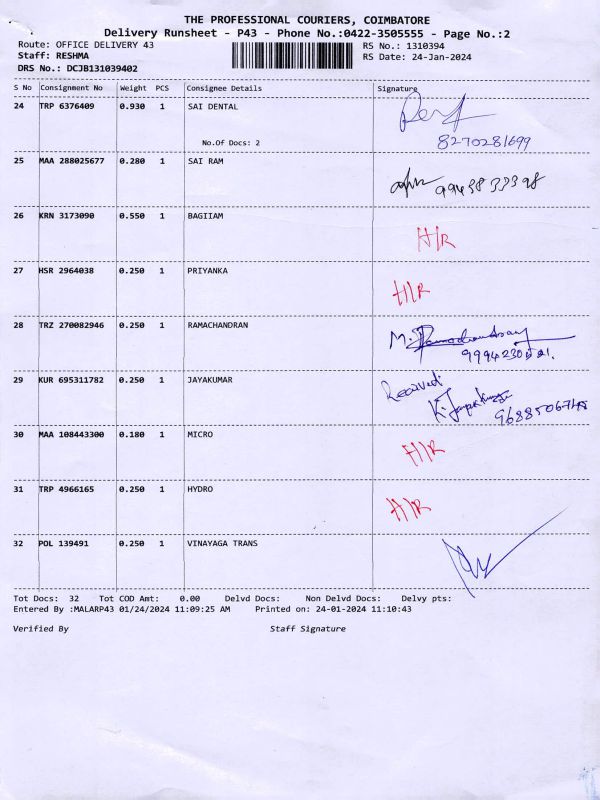 THE PROFESSIONAL COURIERS, COIMBATORE
Delivery Runsheet - P43 - Phone No.:0422-3505555 - Page No.:2
Route: OFFICE DELIVERY 43 RS No.: 1310394
Staff: RESHMA RS Date: 24-Jan-2024
DRS No.: DCJB131039402
S No Consignment No Weight PCS Consignee Details Signature
24 TRP 6376409 0.930 1 SAI DENTAL
No.Of Docs: 2 8270281699
25 MAA 288025677 0.280 1 SAI RAM
26 KRN 3173090 0.550 1 BAGIIAM H/R
27 HSR 2964038 0.250 1 PRIYANKA H/R
28 TRZ 270082946 0.250 1 RAMACHANDRAN M. Ramachandran
29 KUR 695311782 0.250 1 JAYAKUMAR Received
K. Jayakumar
9688506748
30 MAA 108443300 0.180 1 MICRO H/R
31 TRP 4966165 0.250 1 HYDRO H/R
32 POL 139491 0.250 1 VINAYAGA TRANS
Tot Docs: 32 Tot COD Amt: 0.00 Delvd Docs: Non Delvd Docs: Delvy pts:
Entered By :MALARP43 01/24/2024 11:09:25 AM Printed on: 24-01-2024 11:10:43
Verified By Staff Signature